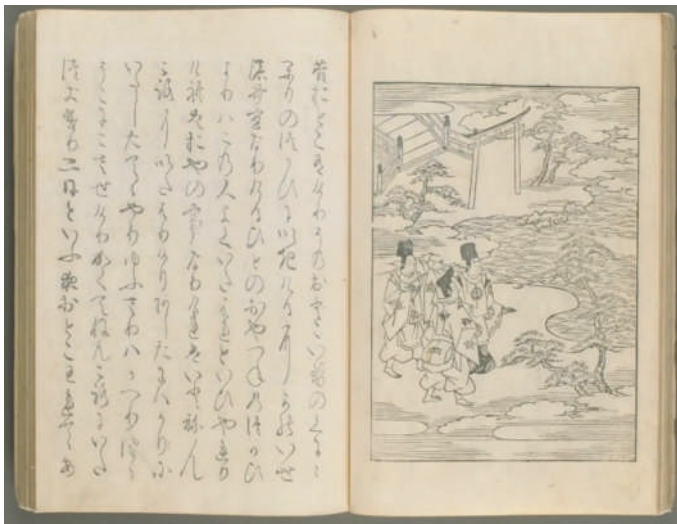 昔おとこ有けりそのおとこいせの国に
かりのつかひにいきけるにかのいせの
斎宮なりけるひとのおやつねのつかひ
よりハこの人よくいたはれといひやれり
けれはおやのことなりけれはいとねん
ころにいたはりけりあしたにハかりに
いたしたてゝやりゆふさりハかへりつゝ
そこにこさせけりかくてねんころにいた
つきけり二日といふ夜おとこわれてあ